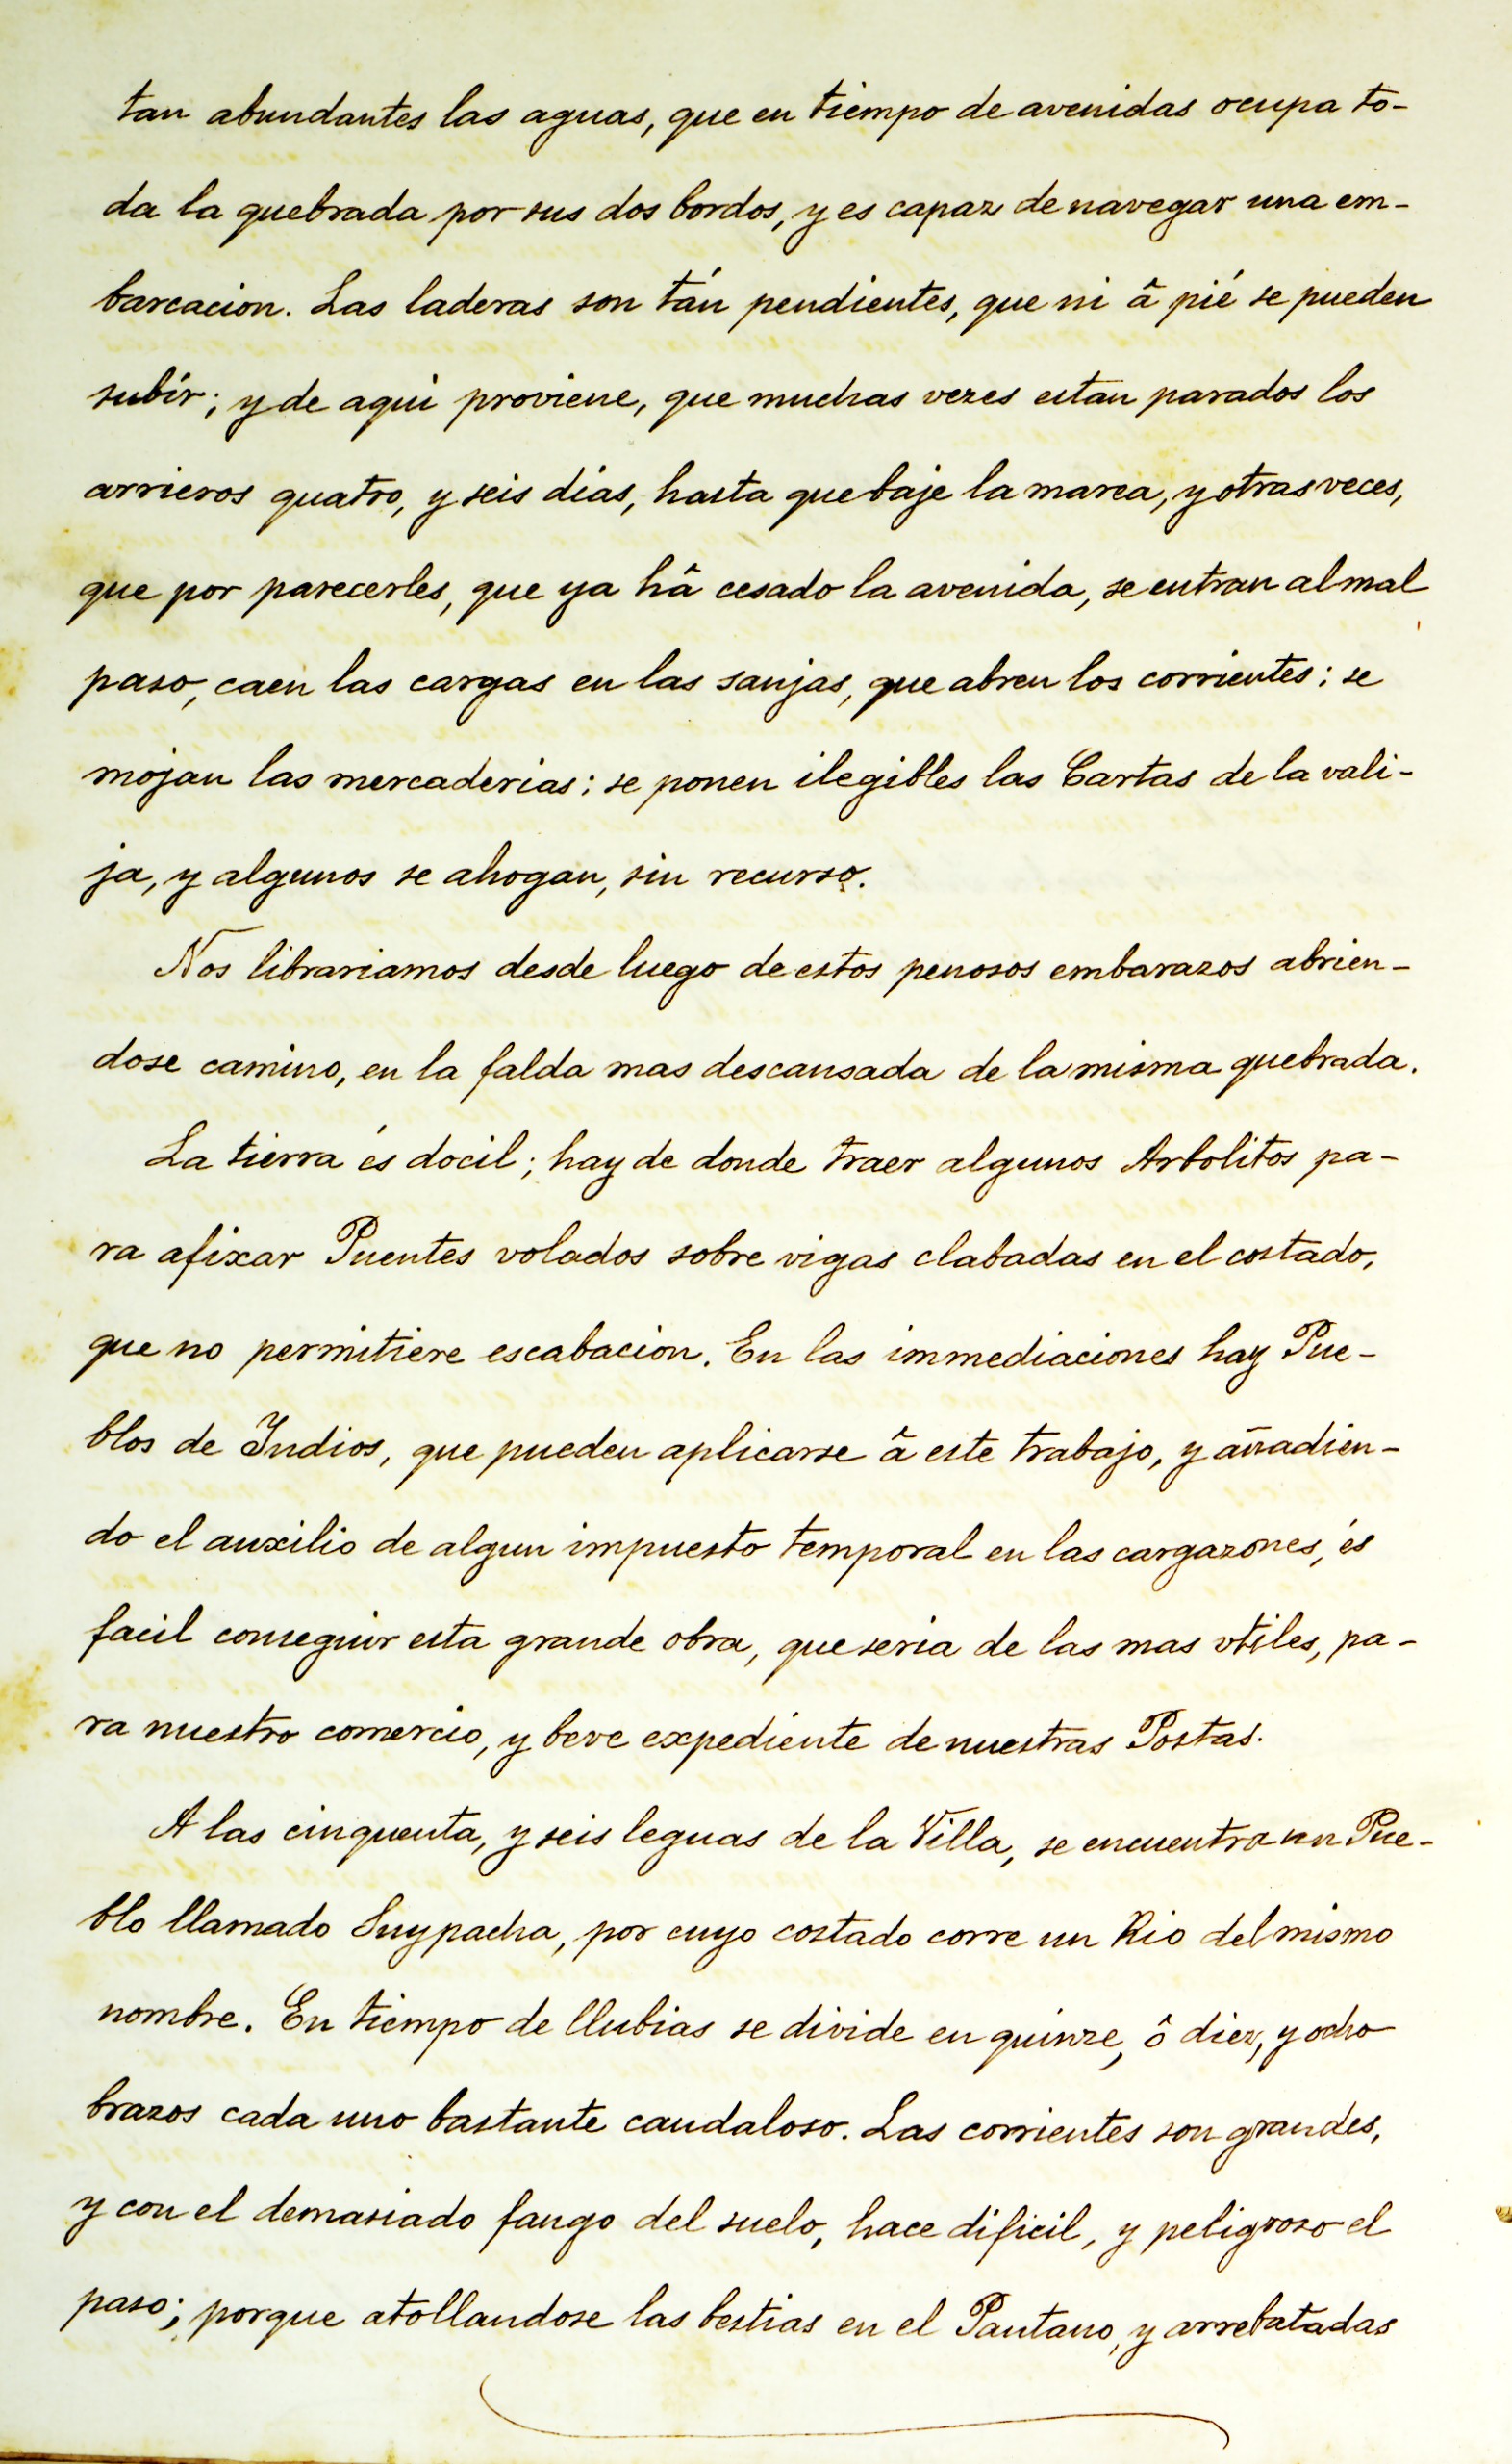 tan abundantes las aguas, que en tiempo de avenidas ocupa to-
da la quebrada por sus dos bordos, y es capaz de navegar una em-
barcacion. Las laderas son tán pendientes, que ni â pié se pueden
subír; y de aqui proviene, que muchas vezes estan parados los
arrieros quatro, y seis dias, hasta que baje la marea, y otras veces,
que por parecerles, que ya hâ cesado la avenida, se entran al mal
paso, caen las cargas en las sanjas, que abren los corrientes; se
mojan las mercaderias; se ponen ilegibles las Cartas de la vali-
ja, y algunos se ahogan, sin recurso.
Nos librariamos desde luego de estos penosos embarazos abrien-
dose camino, en la falda mas descansada de la misma quebrada.
La tierra és docil; hay de donde traer algunos Arbolitos pa-
ra afixar Puentes volados sobre vigas clabadas en el costado,
que no permitiere escabacion. En las immediaciones hay Pue-
blos de Indios, que pueden aplicarse â este trabajo, y añadien-
do el auxilio de algun impuesto temporal en las cargazones, és
facil conseguir esta grande obra, que seria de las mas vtiles, pa-
ra nuestro comercio, y beve expediente de nuestras Postas.
A las cinquenta, y seis leguas de la Villa, se encuentra un Pue-
blo llamado Suypacha, por cuyo costado corre un Rio del mismo
nombre. En tiempo de llubias se divide en quinze, ô diez, y ocho
brazos cada uno bastante caudaloso. Las corrientes son grandes,
y con el demasiado fango del suelo, hace dificil, y peligroso el
paso; porque atollandose las bestias en el Pantano, y arrebatadas